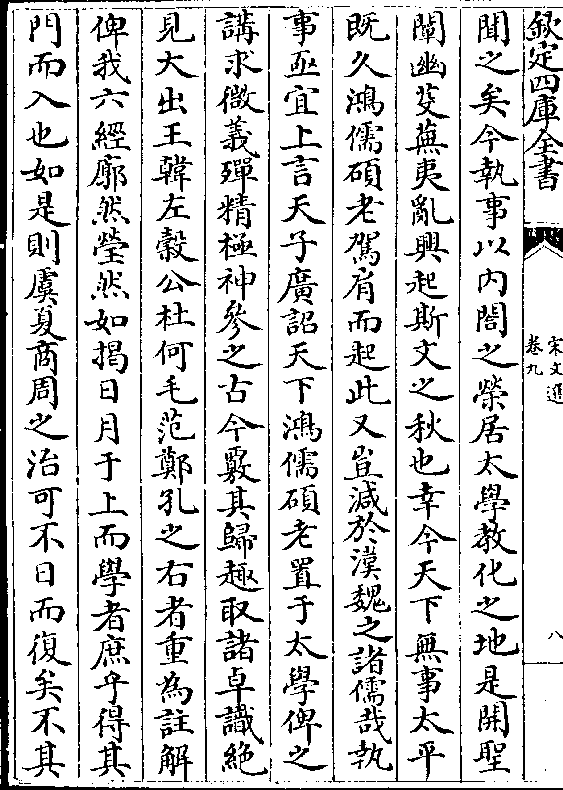 欽定四庫全書
宋文選
卷九
八
聞之矣今執事以内閣之榮居太學教化之地是開聖
闡幽芟蕪夷亂興起斯文之秋也幸今天下無事太平
既久鴻儒碩老駕肩而起此又豈減於漢魏之諸儒哉執
事亟宜上言天子廣詔天下鴻儒碩老置于太學俾之
講求微義殫精極神參之古今覈其歸趣取諸卓識絶
見大出王韓左穀公杜何毛范鄭孔之右者重為註解
俾我六經廓然瑩然如揭日月于上而學者庶乎得其
門而入也如是則虞夏商周之治可不日而復矣不其